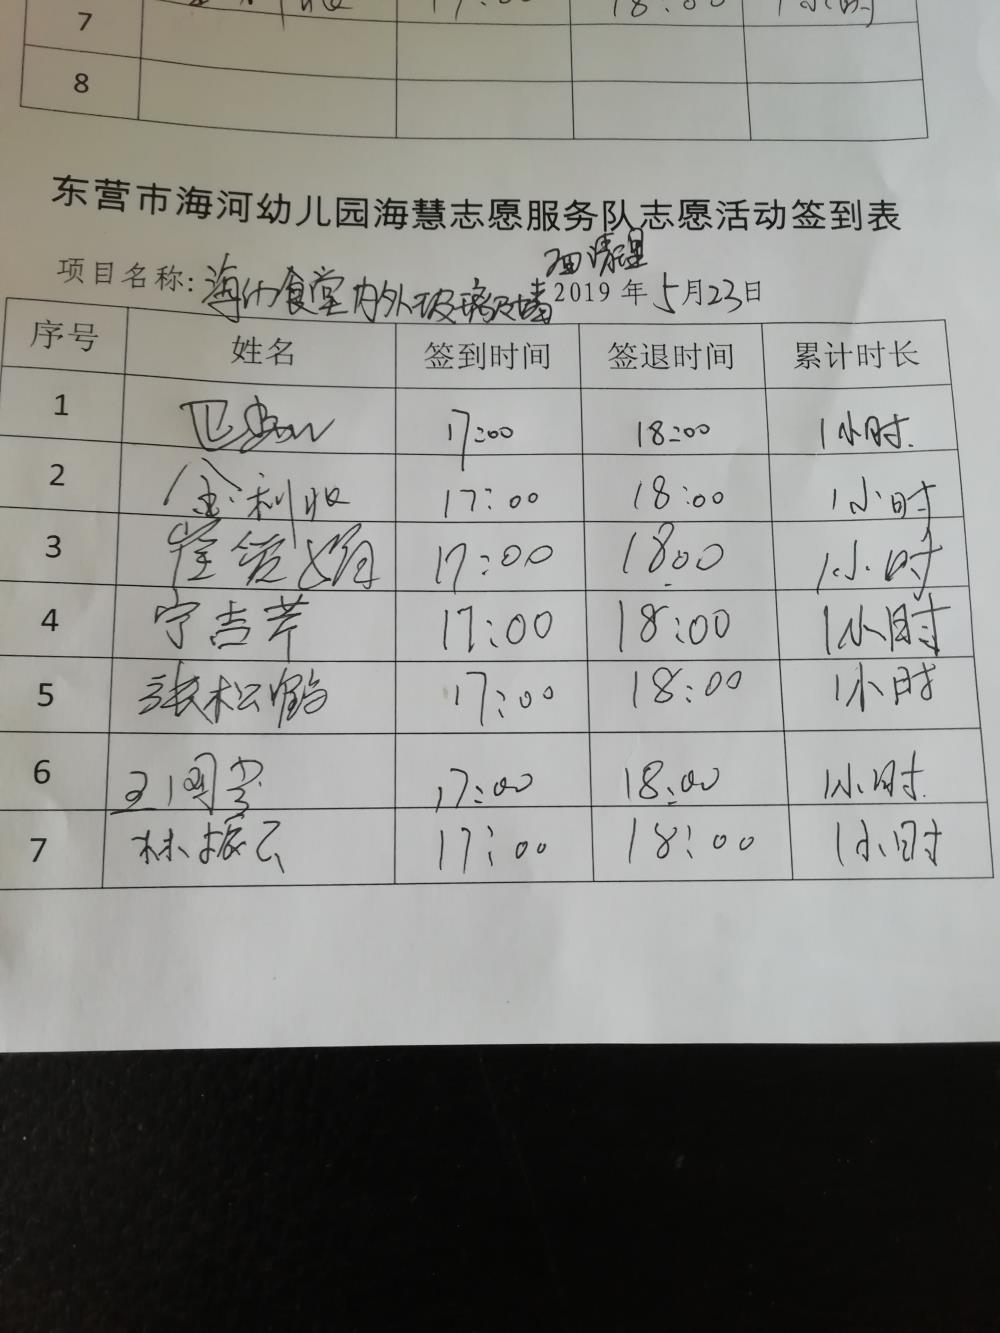 7 17:00 18:00 1小时
8
东营市海河幼儿园海慧志愿服务队志愿活动签到表
项目名称: 海河食堂内外玻璃及墙面清理 2019年5月23日
序号 姓名 签到时间 签退时间 累计时长
1 17:00 18:00 1小时
2 金利 17:00 18:00 1小时
3 崔 娟 17:00 18:00 1小时
4 宁吉芹 17:00 18:00 1小时
5 张松鹤 17:00 18:00 1小时
6 王 17:00 18:00 1小时
7 林振云 17:00 18:00 1小时